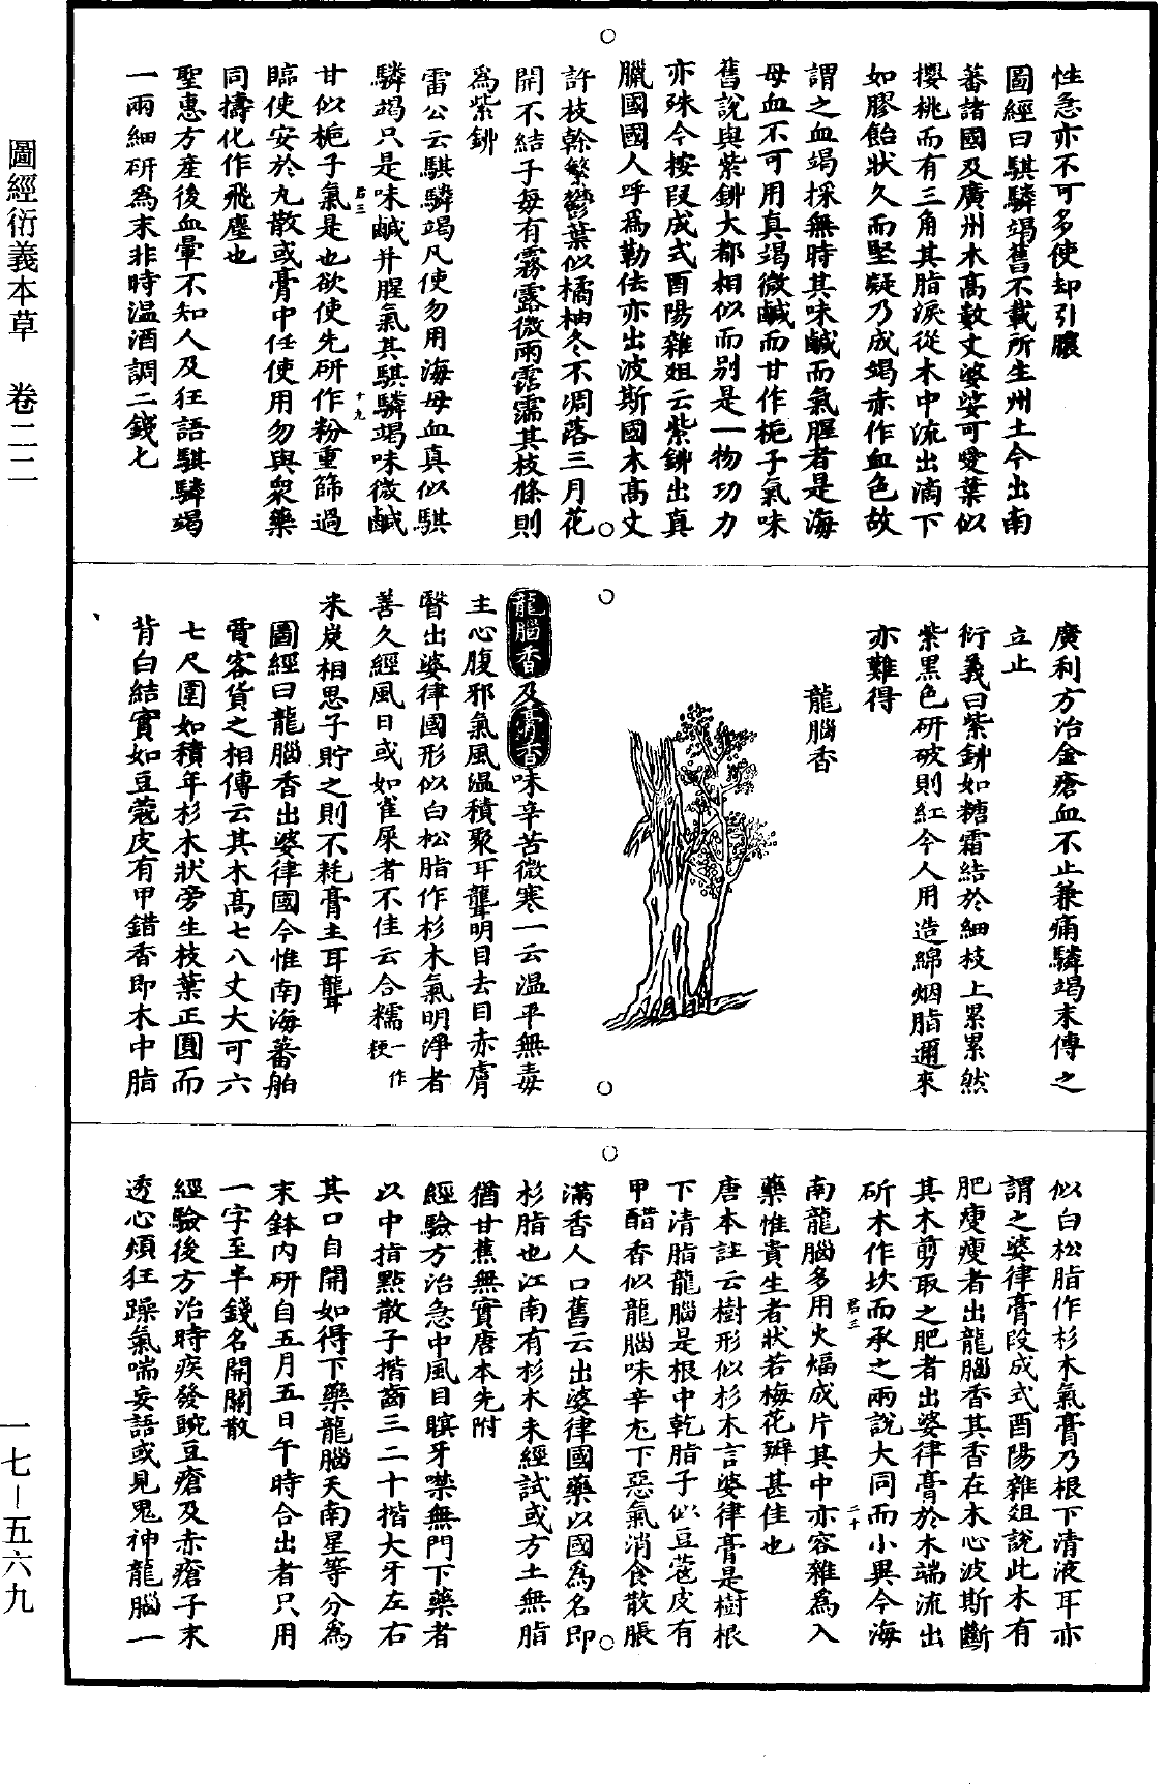 圖經衍義本草　卷二二
一七—五六九
性急亦不可多使却引膿
圖經曰騏驎竭舊不載所生州土今出南
蕃諸國及廣州木高數丈婆娑可愛葉似
櫻桃而有三角其脂淚從木中流出滴下
如膠飴狀久而堅凝乃成竭赤作血色故
謂之血竭採無時其味鹹而氣腥者是海
母血不可用真竭微鹹而甘作梔子氣味
舊說與紫鉚大都相似而別是一物功力
亦殊今按段成式酉陽雜俎云紫鉚出真
臘國國人呼為勒佉亦出波斯國木高丈
許枝幹繁鬱葉似橘柚冬不凋落三月花
開不結子每有霧露微雨霑濡其枝條則
為紫鉚
雷公云騏驎竭凡使勿用海母血真似騏
驎竭只是味鹹并腥氣其騏驎竭味微鹹
君三
十九
甘似梔子氣是也欲使先研作粉重篩過
臨使安於丸散或膏中任使用勿與衆藥
同擣化作飛塵也
聖惠方產後血暈不知人及狂語騏驎竭
一兩細研為末非時温酒調二錢七
廣利方治金瘡血不止兼痛驎竭末傅之
立止
衍義曰紫鉚如糖霜結於細枝上累累然
紫黑色研破則紅今人用造綿烟脂邇來
亦難得
龍腦香
龍腦香及膏香味辛苦微寒一云温平無毒
主心腹邪氣風温積聚耳聾明目去目赤膚
瞖出婆律國形似白松脂作杉木氣明淨者
善久經風日或如雀屎者不佳云合糯一作粳
米炭相思子貯之則不耗膏主耳聾
圖經曰龍腦香出婆律國今惟南海蕃舶
賈客貨之相傳云其木高七八丈大可六
七尺圍如積年杉木狀旁生枝葉正圓而
背白結實如豆蔻皮有甲錯香即木中脂
似白松脂作杉木氣膏乃根下清液耳亦
謂之婆律膏段成式酉陽雜俎說此木有
肥瘦瘦者出龍腦香其香在木心波斯斷
其木剪取之肥者出婆律膏於木端流出
斫木作坎而承之兩說大同而小異今海
君三
二十
南龍腦多用火煏成片其中亦容雜為入
藥惟貴生者狀若梅花瓣甚佳也
唐本註云樹形似杉木言婆律膏是樹根
下清脂龍腦是根中乾脂子似豆蔻皮有
甲醋香似龍腦味辛尤下惡氣消食散脹
滿香人口舊云出婆律國藥以國為名即
杉脂也江南有杉木未經試或方土無脂
猶甘蕉無實唐本先附
經驗方治急中風目瞑牙噤無門下藥者
以中指點散子揩齒三二十揩大牙左右
其口自開如得下藥龍腦天南星等分為
末鉢內研自五月五日午時合出者只用
一字至半錢名開關散
經驗後方治時疾發豌豆瘡及赤瘡子末
透心煩狂躁氣喘妄語或見鬼神龍腦一